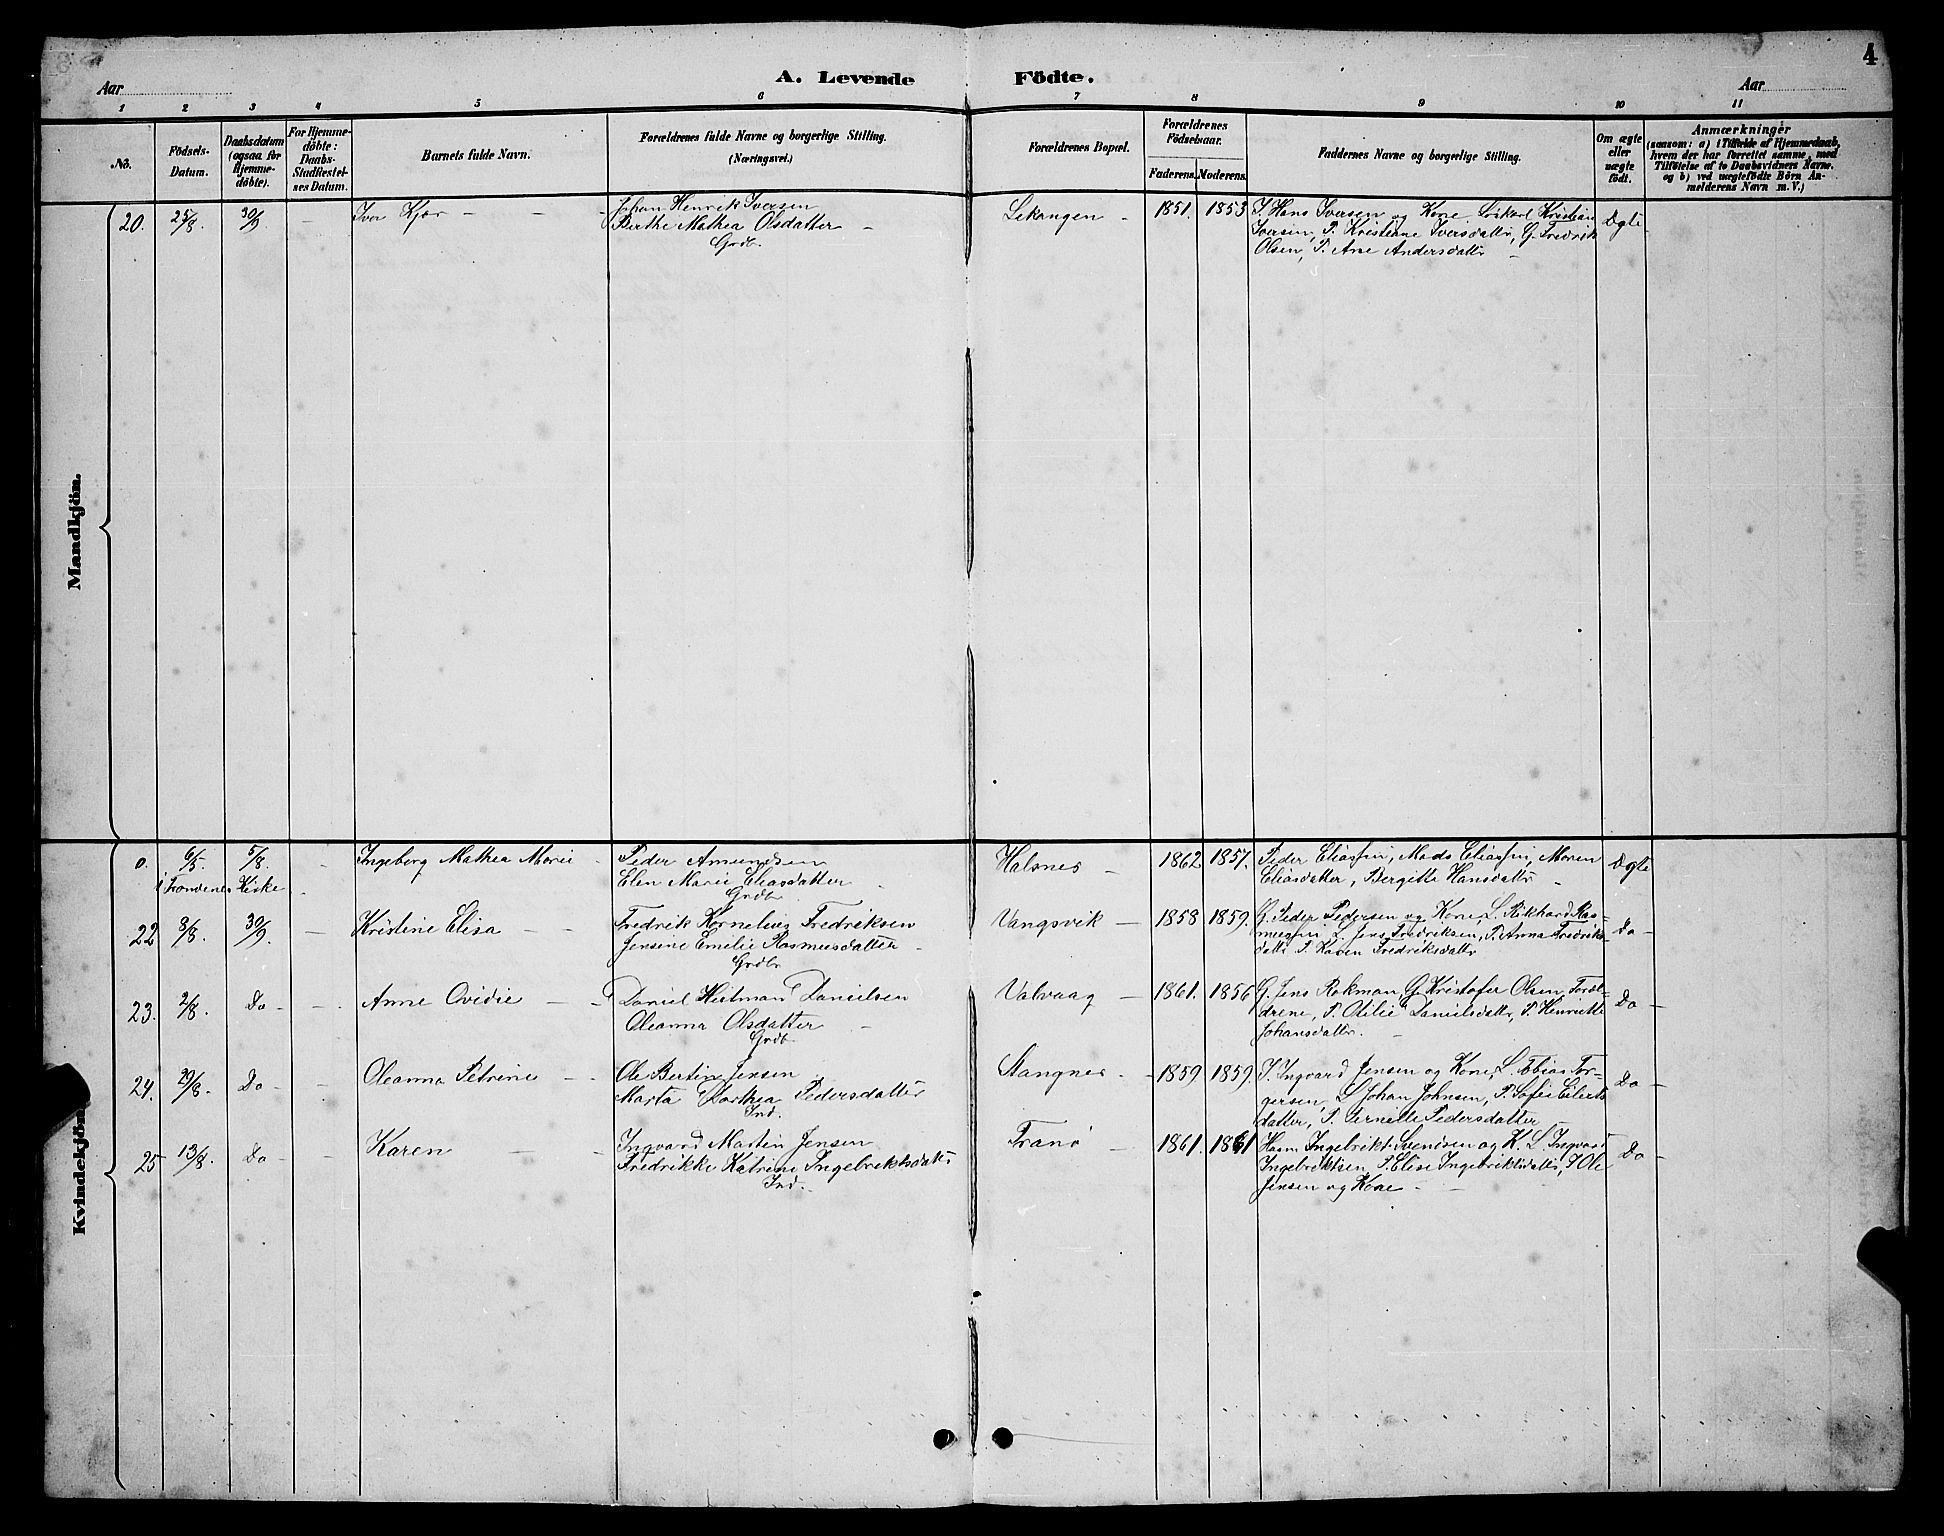 4
Aar
A. Levende Födte.
Aar
1 2 3 4 5 6 7 8 9 10 11
No.
Födsels-
Datum.
Daabsdatum
(ogsaa for
Hjemme-
döbte).
For Hjemme-
döbte:
Daabs-
Stadfæstel-
nes Datum.
Barnets fulde Navn.
Forældrenes fulde Navne og borgerlige Stilling.
(Næringsvei.)
Forældrenes Bopæl.
Forældrenes
Födselsaar.
Faderens. Moderens.
Faddernes Navne og borgerlige Stilling.
Om ægte
eller
uægte
födt.
Anmærkninger
(saasom: a) i Tilfælde af Hjemmedaab,
hvem der har forrettet samme, med
Tilföielse af to Daabsvidners Navne.
og b) ved uægtefödte Börn An-
melderens Navn m. V.)
Mandkjön.
20. 25/8. 30/9 - Iver Kjær - - -
Johan Henrik Iversen
Berthe Mathea Olsdatter -
Grdb.
Lekangen - 1851. 1853
I. Hans Iversen og Kone, Kristian
Iversen, P. Kristiane Iversdattr, G. Fredrik
Olsen, P. Ane Andersdattr -
Ægte
Kvindekjön.
0. 6/5 5/8. - Ingeborg Mathea Marie -
i Trondenes Kirke
Peder Amundsen
Elen Marie Eliasdatter -
Grdb.
Halsnes - 1862 1857.
Peder Eliassen, Mads Eliassen, Maren
Eliasdatter, Bergitte Hansdattr -
Ægte
22 8/8. 30/9 - Kristine Elisa - -
Fredrik Kornelius Fredriksen
Jensine Emelie Rasmusdatter -
Grdbr
Vangsvik - 1858 1859.
G. Peder Pedersen og Kone, L. Rikhard Ras-
mussen, L. Jens Fredriksen, P. Anna Fredriks-
dattr P. Karen Fredriksdattr
Do -
23. 2/8. Do - - Anne Ovidie - -
Daniel Heitman Danielsen
Oleanna Olsdatter -
Grdb.
Valvaag - 1861. 1856
G. Jens Rokman, G. Kristofer Olsen, Foræl-
drene, P. Otilie Danielsdattr, P. Henriette
Johansdattr. -
Do -
24. 29/8- Do - - Oleanna Petrine - -
Ole Bertin Jensen -
Marta Dorthea Pedersdatter
Ind.
Stangnes - 1859 1859.
I. Ingvard Jensen og Kone, L. Tobias Tor-
gersen, L. Johan Johnsen, P. Sofie Eilerts
datter, P. Pernille Pedersdatter
Do -
25 13/8. Do - - Karen - -
Ingvard Martin Jensen
Fredrikke Katrine Ingebriktsdattr
Ind. -
Tranø - 1861. 1861
Ingebrikt Svendsen og K. L. Ingvard
Ingebriktsen, P. Elise Ingebriktsdattr, I Ole
Jensen og Kone - -
Do -